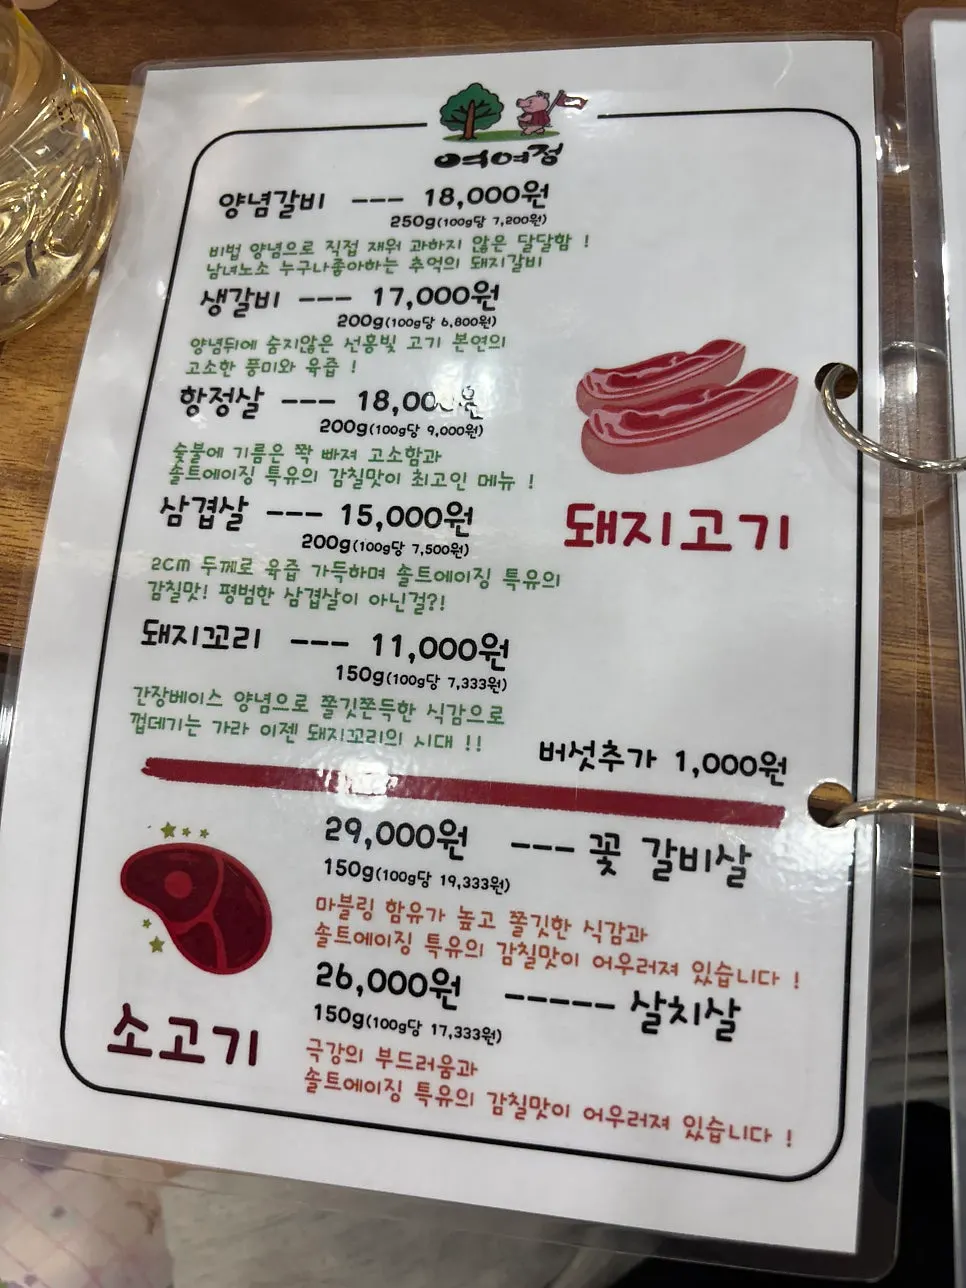 여여정
양념갈비 --- 18,000원
250g(100g당 7,200원)
비법 양념으로 직접 재워 과하지 않은 달달함 !
남녀노소 누구나좋아하는 추억의 돼지갈비
생갈비 --- 17,000원
200g(100g당 6,800원)
양념뒤에 숨지않은 선홍빛 고기 본연의
고소한 풍미와 육즙 !
항정살 --- 18,000원
200g(100g당 9,000원)
숯불에 기름은 쫙 빠져 고소함과
솔트에이징 특유의 감칠맛이 최고인 메뉴 !
삼겹살 --- 15,000원
200g(100g당 7,500원)
2CM 두께로 육즙 가득하며 솔트에이징 특유의
감칠맛! 평범한 삼겹살이 아닌걸?!
돼지꼬리 --- 11,000원
150g(100g당 7,333원)
간장베이스 양념으로 쫄깃쫀득한 식감으로
껍데기는 가라 이젠 돼지꼬리의 시대 !!
돼지고기
버섯추가 1,000원
29,000원 --- 꽃 갈비살
150g(100g당 19,333원)
마블링 함유가 높고 쫄깃한 식감과
솔트에이징 특유의 감칠맛이 어우러져 있습니다 !
26,000원 ----- 살치살
150g(100g당 17,333원)
극강의 부드러움과
솔트에이징 특유의 감칠맛이 어우러져 있습니다 !
소고기